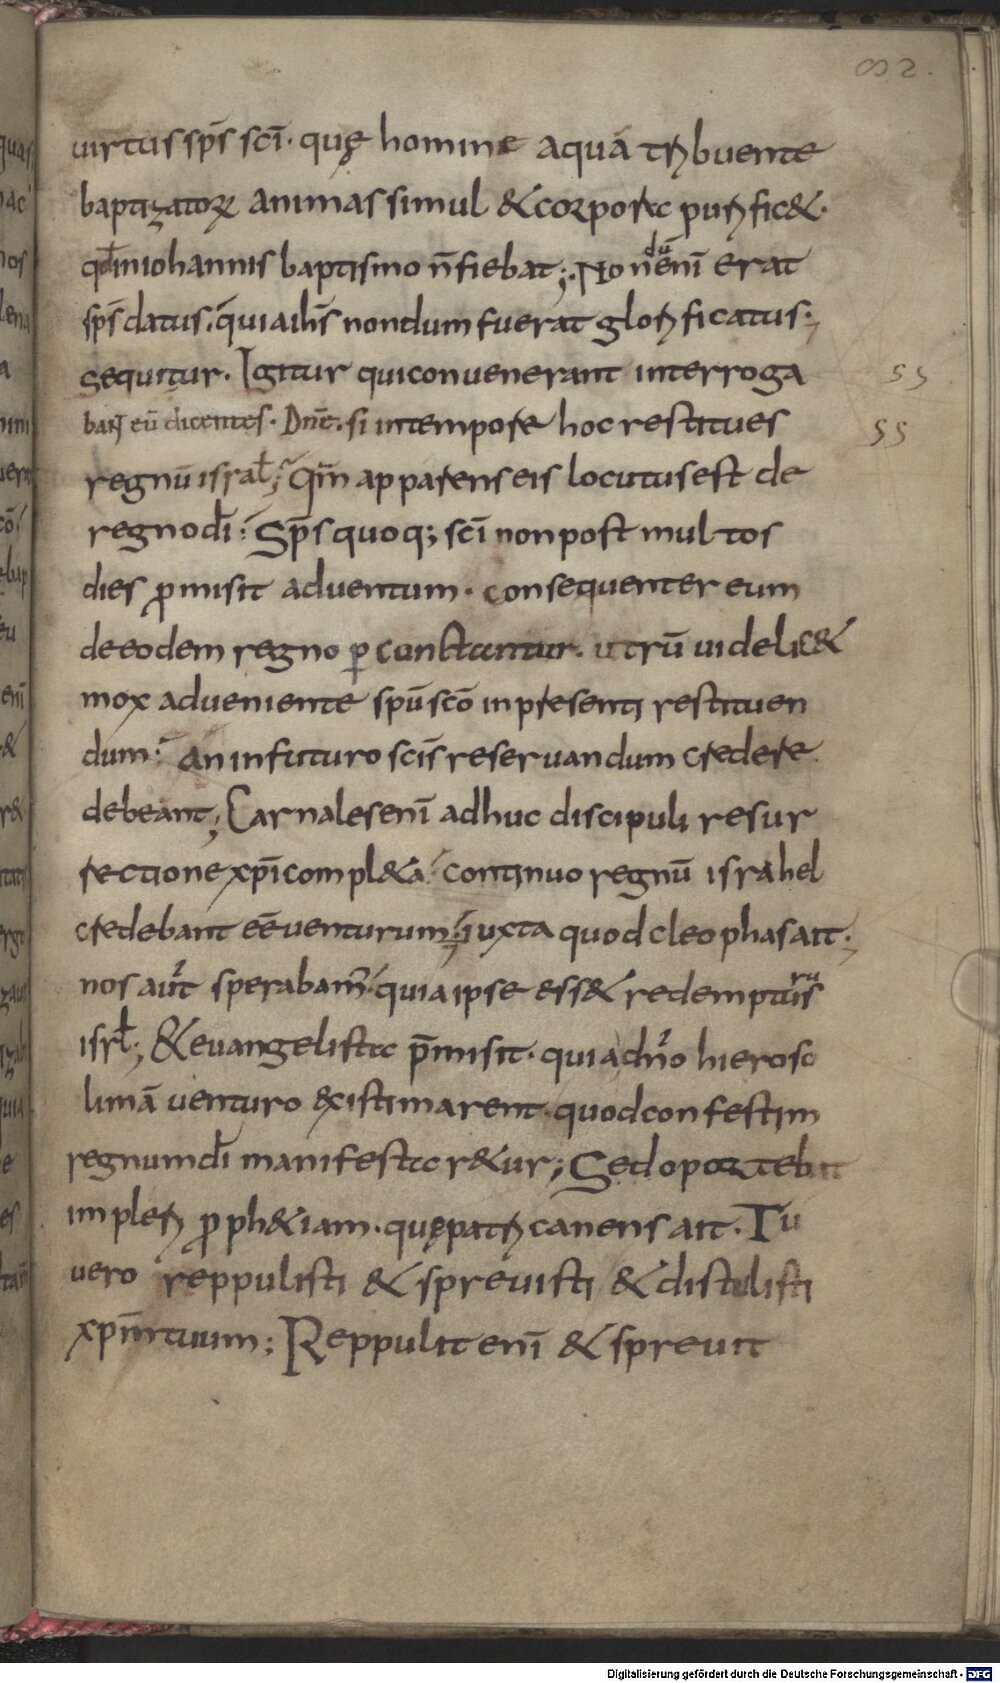 82.
uirtus sp̄s sc̄i· quę homine aquā tribuente
baptizatorꝝ animas simul & corpore purific&·
qđ in iohannis baptismo n̄ fiebat; Nondū enī erat
sp̄s datus· quia ih̄s nondum fuerat glorificatus·;
sequitur· Igitur qui conuenerant interroga
bant eū dicentes· Dn̄e· si in tempore hoc restitues
regnū israł; Qm̄ apparens eis locutus est de
regno dī· Sp̄s quoq; sc̄i non post multos
dies ꝓmisit aduentum· consequenter eum
de eodem regno ꝑcunctantur· utrū uidelic&
mox adueniente sp̄u sc̄o in presenti restituen
dum· an in futuro sc̄is reseruandum credere
debeant; Carnales enī adhuc discipuli resur
rectione xp̄i compl&a· continuo regnū israhel
credebant eē uenturum· iuxta quod cleophas ait·;
nos aut̄ sperabam̄· quia ipse ess& redempturus
isrł; & euangelista p̄misit· qui a dn̄o hieroso
limā uenturo existimarent· quod confestim
regnum dī manifestar&ur; Sed oportebat
impleri ꝓph&iam· quę patri canens ait· Tu
uero reppulisti & spreuisti & distulisti
xp̄m tuum; Reppulit enī & spreuit
Digitalisierung gefördert durch die Deutsche Forschungsgemeinschaft - DFG